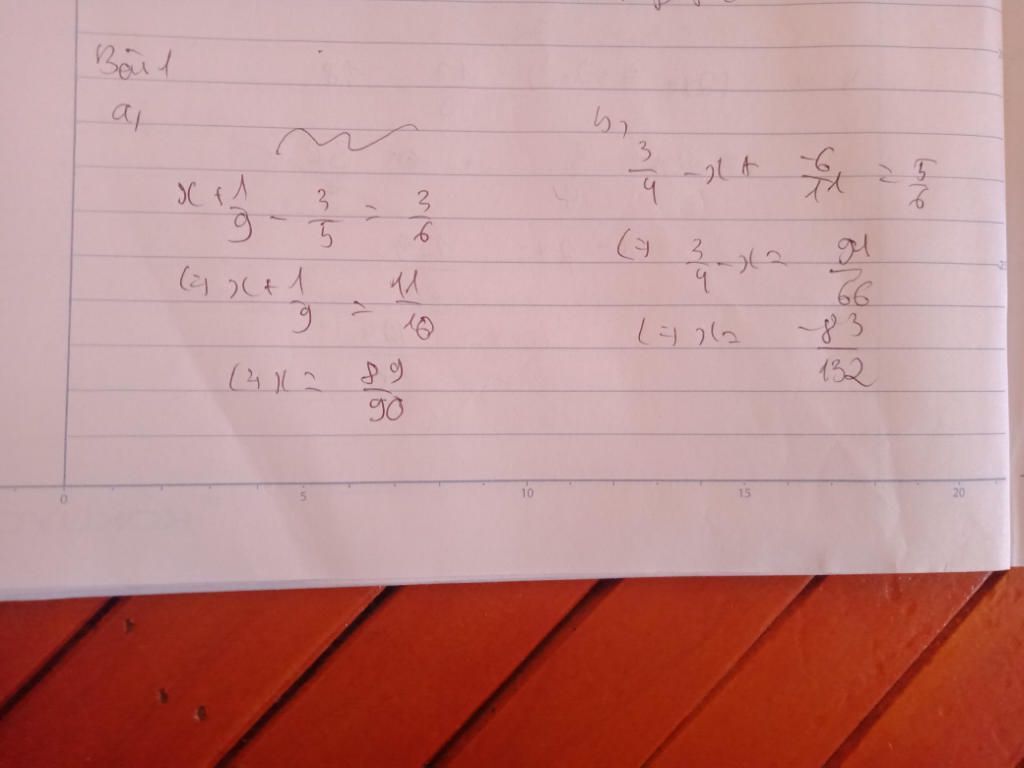 Bài 1
a,
x + 1/9 - 3/5 = 3/6
(=) x + 1/9 = 11/10
(=) x = 89/90
b,
3/4 - x + -6/11 = 5/6
(=) 3/4 - x = 91/66
(=) x = -83/132
0 5 10 15 20